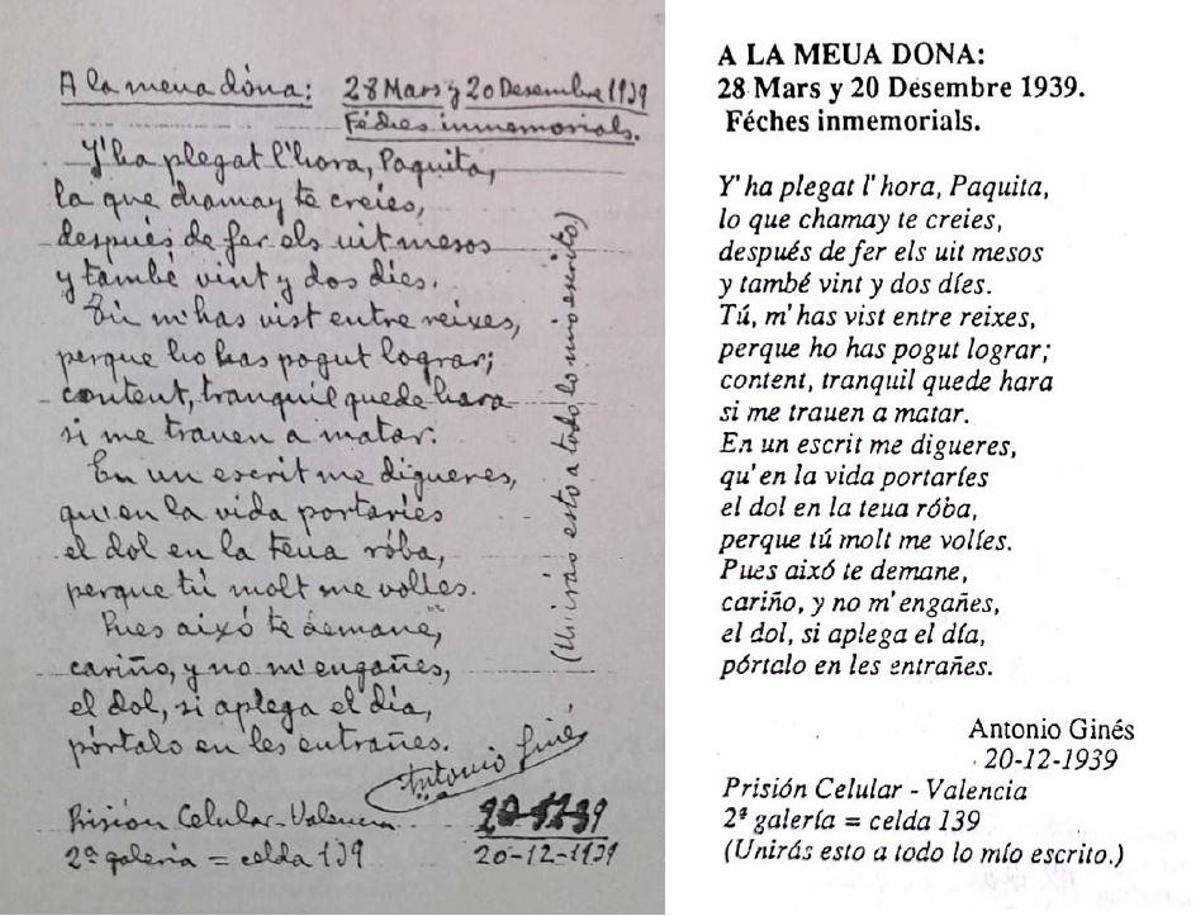 A la meua dòna: 28 Mars y 20 Desembre 1939
Féches inmemorials.
Y'ha plegat l'hora, Paquita,
lo que chamay te creies,
después de fer els uit mesos
y també vint y dos díes.
Tú m'has vist entre reixes,
perque ho has pogut lograr;
content, tranquil quede hara
si me trauen a matar.
En un escrit me digueres,
qu'en la vida portaríes
el dol en la teua róba,
perque tú molt me volíes.
Pues aixó te demane,
cariño, y no m'engañes,
el dol, si aplega el día,
pórtalo en les entrañes.
Antonio Ginés
Prisión Celular - Valencia
2ª galería = celda 139
20-12-1939
(Unirás esto a todo lo mío escrito.)
A LA MEUA DONA:
28 Mars y 20 Desembre 1939.
Féches inmemorials.
Y' ha plegat l' hora, Paquita,
lo que chamay te creies,
después de fer els uit mesos
y també vint y dos díes.
Tú, m' has vist entre reixes,
perque ho has pogut lograr;
content, tranquil quede hara
si me trauen a matar.
En un escrit me digueres,
qu' en la vida portaríes
el dol en la teua róba,
perque tú molt me volíes.
Pues aixó te demane,
cariño, y no m' engañes,
el dol, si aplega el día,
pórtalo en les entrañes.
Antonio Ginés
20-12-1939
Prisión Celular - Valencia
2ª galería = celda 139
(Unirás esto a todo lo mío escrito.)